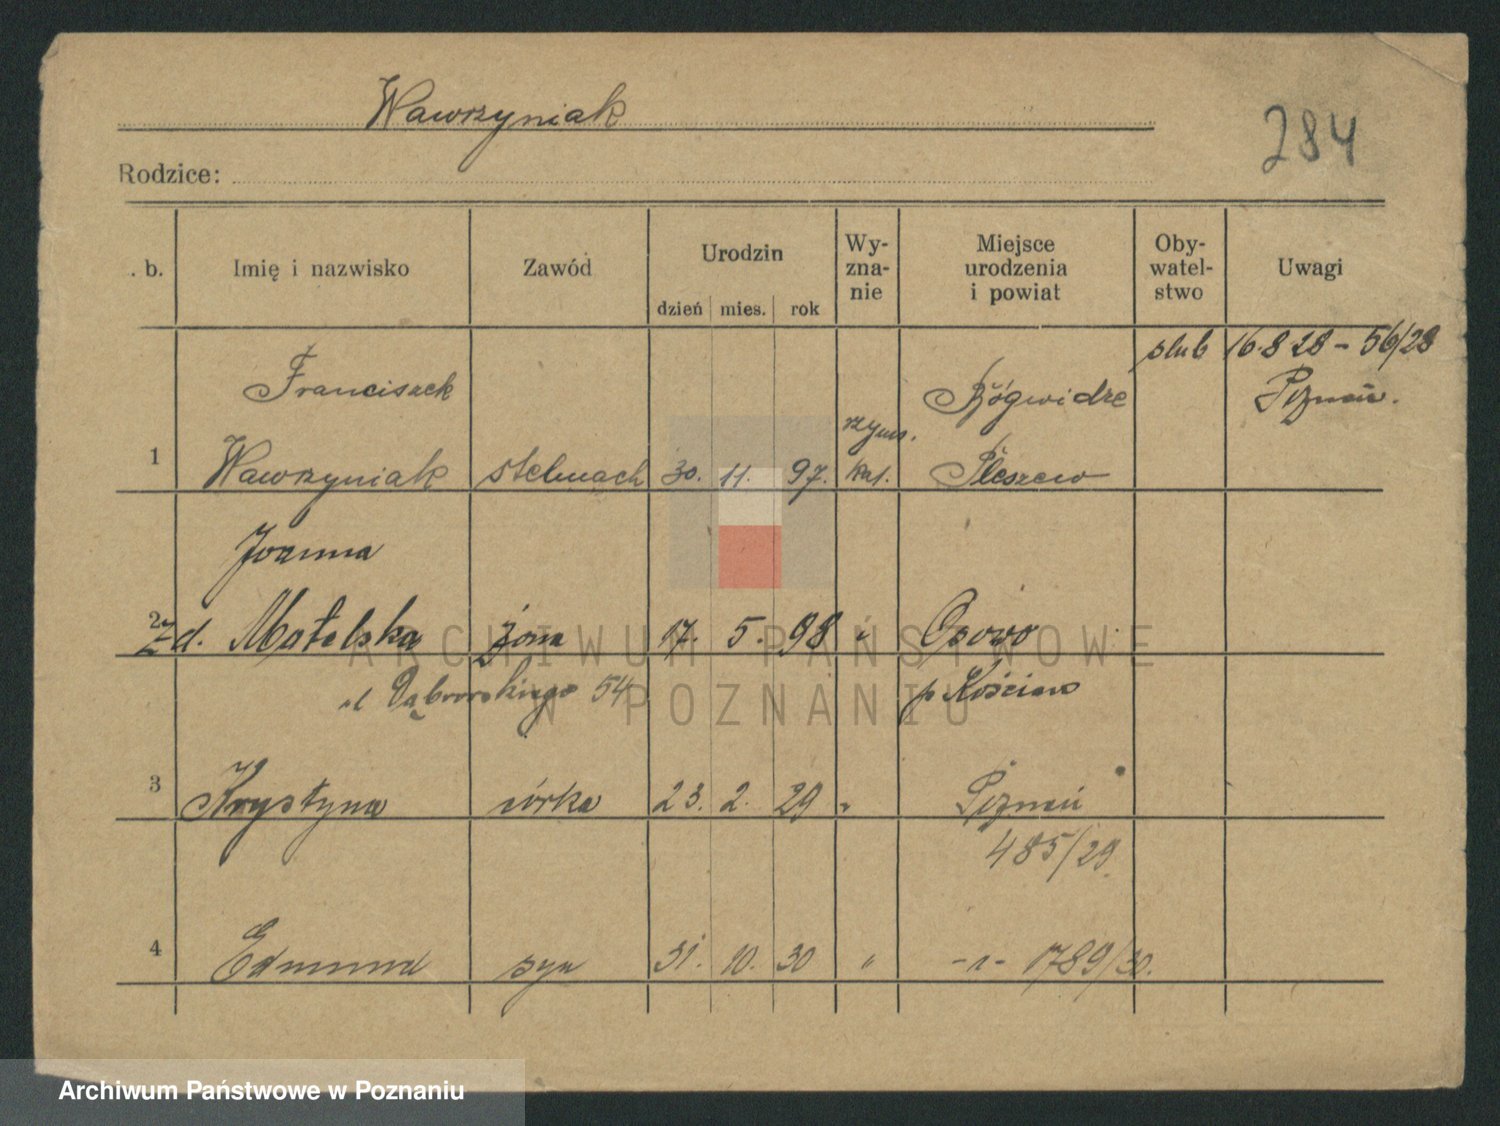 Wawrzyniak
284
Rodzice:
. b. Imię i nazwisko Zawód Urodzin dzień mies. rok Wy-zna-nie Miejsce urodzenia i powiat Oby-watel-stwo Uwagi
ślub 16.8 28 – 56/28
Poznań.
Franciszek Bógwidze
1 Wawrzyniak stelmach 30. 11. 97. rzyms. kat. Pleszew
Joanna
2 z d. Matelska żona 17. 5. 98 " Osowo
ul Dąbrowskiego 54 p Kościan
3 Krystyna córka 23. 2. 29 " Poznań
485/29
4 Edmund syn 31. 10. 30 " -"- 1789/30.
ARCHIWUM PAŃSTWOWE
W POZNANIU
Archiwum Państwowe w Poznaniu